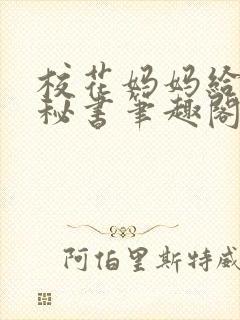 校花妈妈给
秘书笔趣阁
阿伯里斯特威